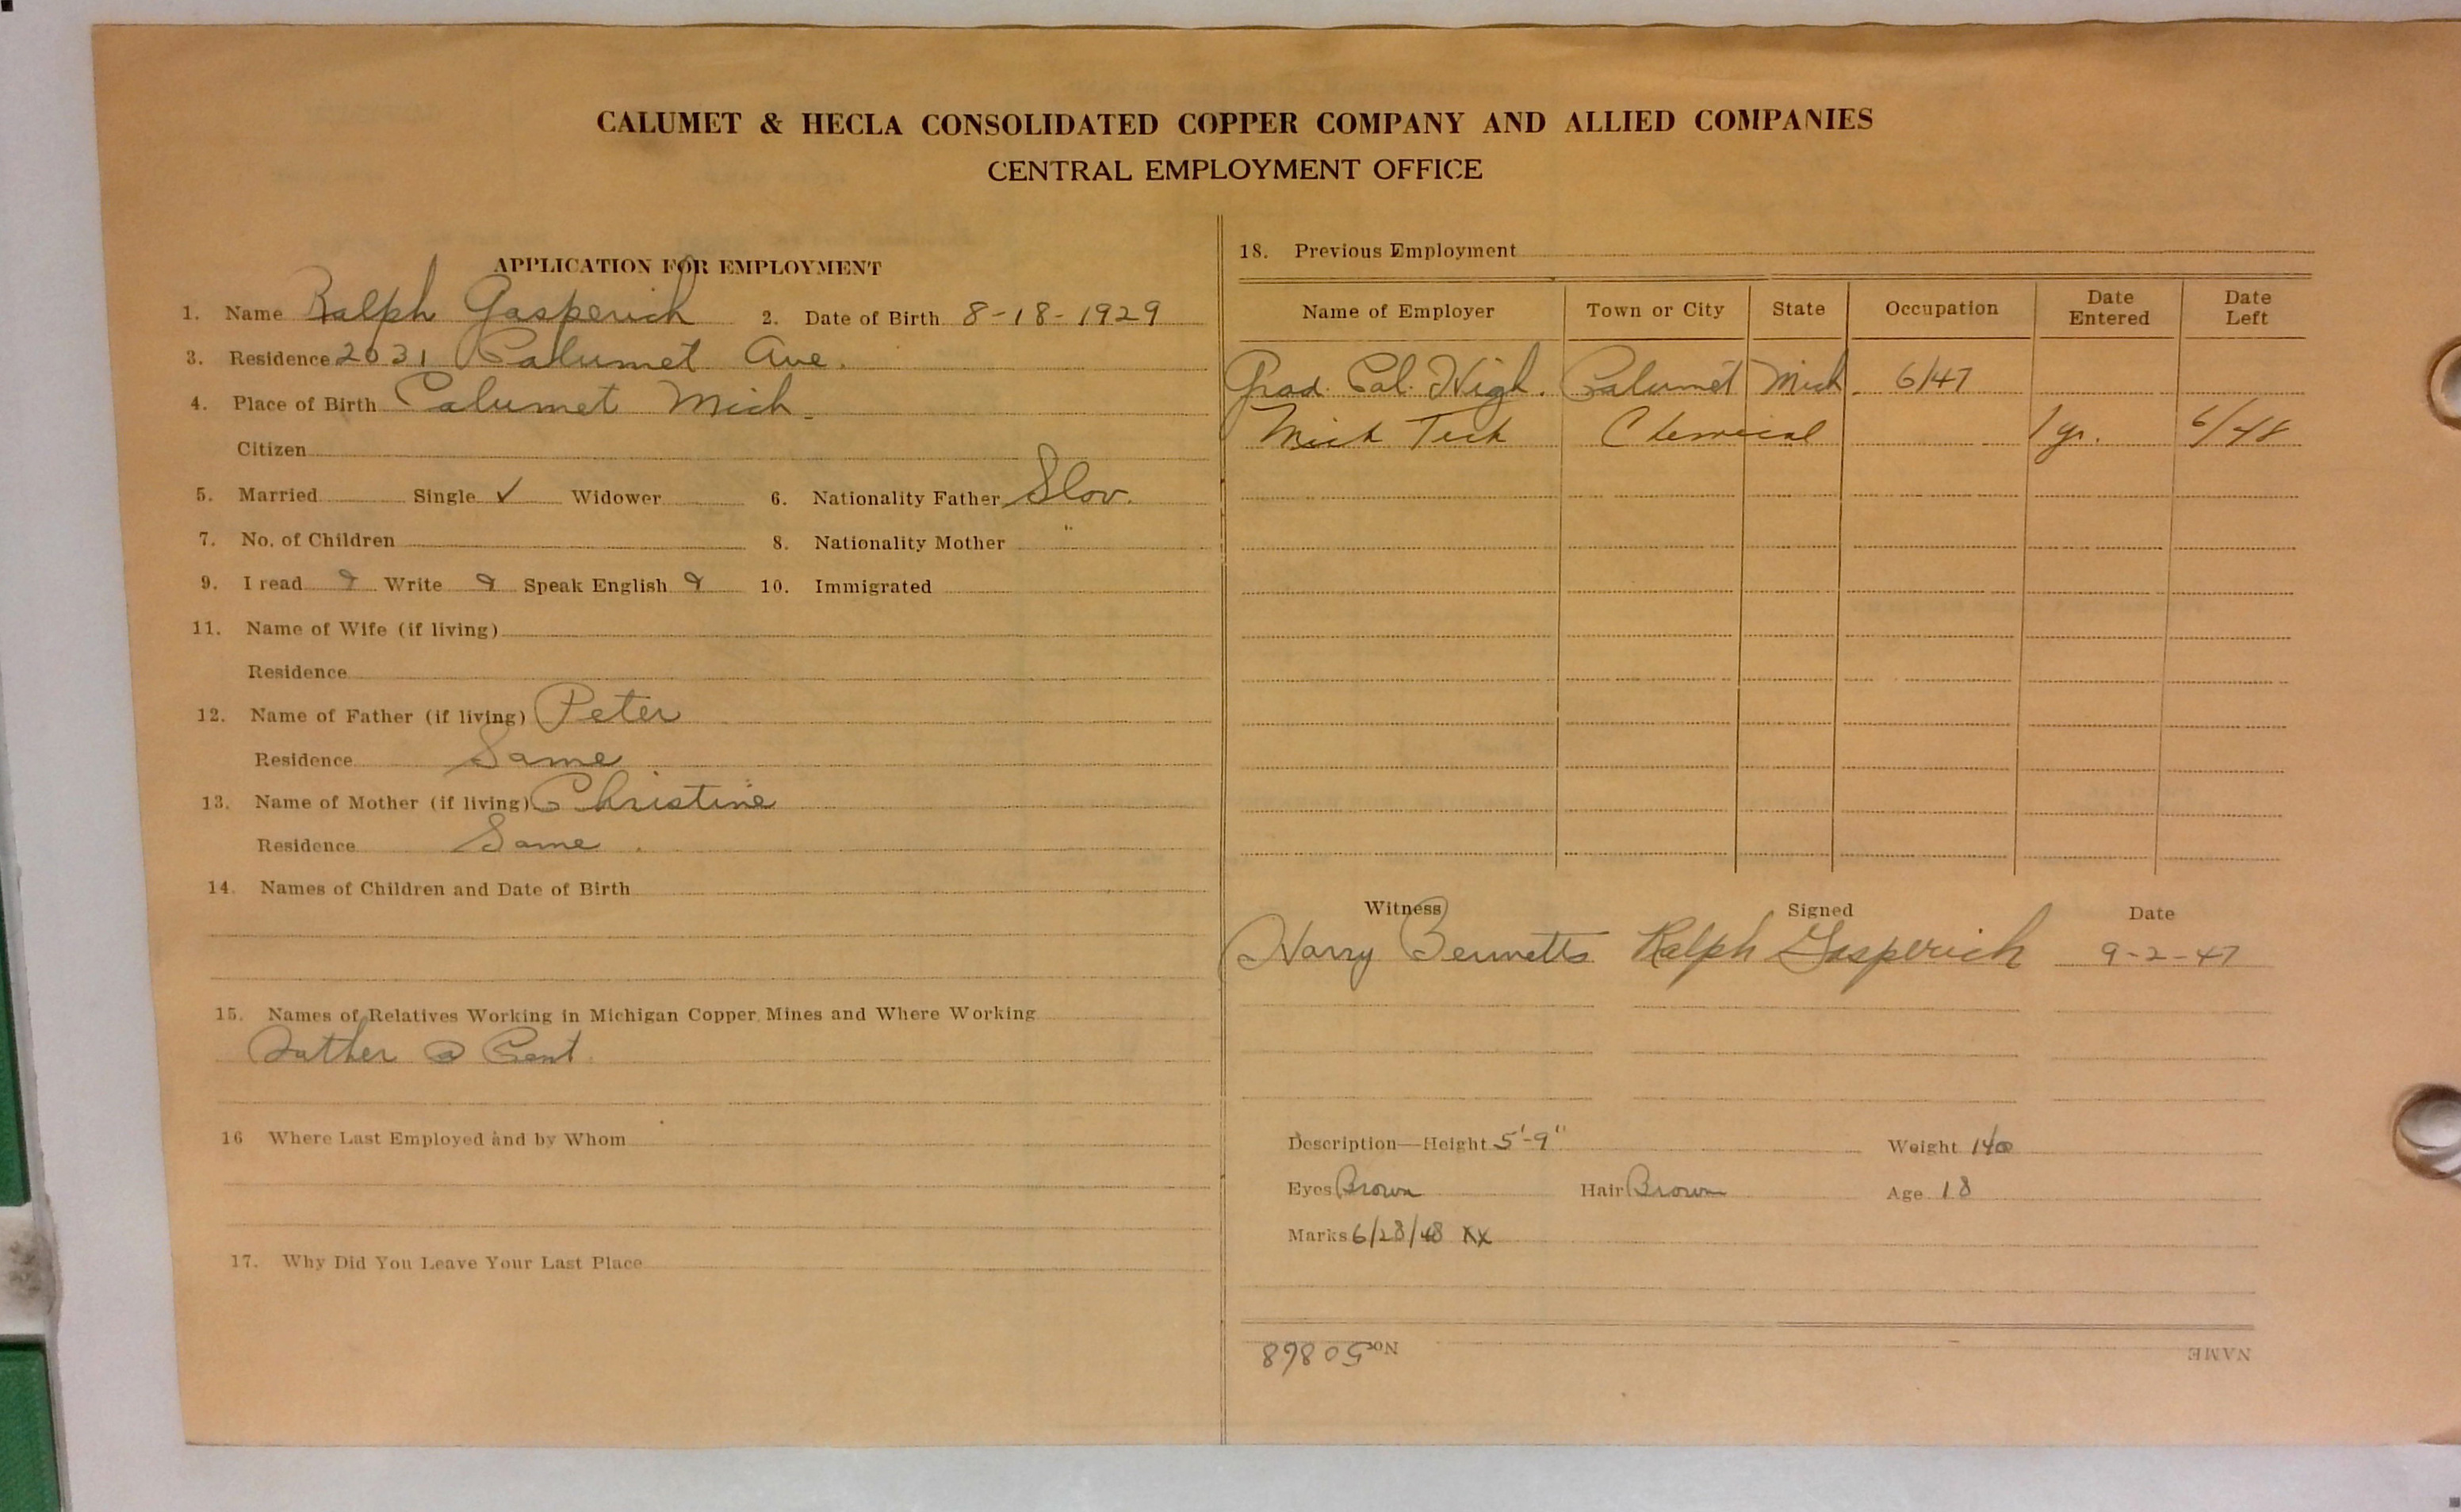 CALUMET & HECLA CONSOLIDATED COPPER COMPANY AND ALLIED COMPANIES
CENTRAL EMPLOYMENT OFFICE
APPLICATION FOR EMPLOYMENT
1. Name Ralph Gasperich 2. Date of Birth 8-18-1929
3. Residence 2031 Calumet Ave.
4. Place of Birth Calumet Mich.
Citizen
5. Married Single ✓ Widower 6. Nationality Father Slov.
7. No. of Children 8. Nationality Mother "
9. I read Write Speak English 10. Immigrated
11. Name of Wife (if living)
Residence
12. Name of Father (if living) Peter
Residence Same
13. Name of Mother (if living) Christine
Residence Same.
14. Names of Children and Date of Birth
15. Names of Relatives Working in Michigan Copper Mines and Where Working
Father @ Cent.
16 Where Last Employed and by Whom
17. Why Did You Leave Your Last Place
18. Previous Employment
Name of Employer Town or City State Occupation Date Entered Date Left
Grad. Cal. High. Calumet Mich. 6/47
Mich Tech Chemical 1 yr. 6/48
Witness Signed Date
Harry Bennetts Ralph Gasperich 9-2-47
Description—Height 5'-9" Weight 140
Eyes Brown Hair Brown Age 18
Marks 6/28/48 XX
NAME No. 50868